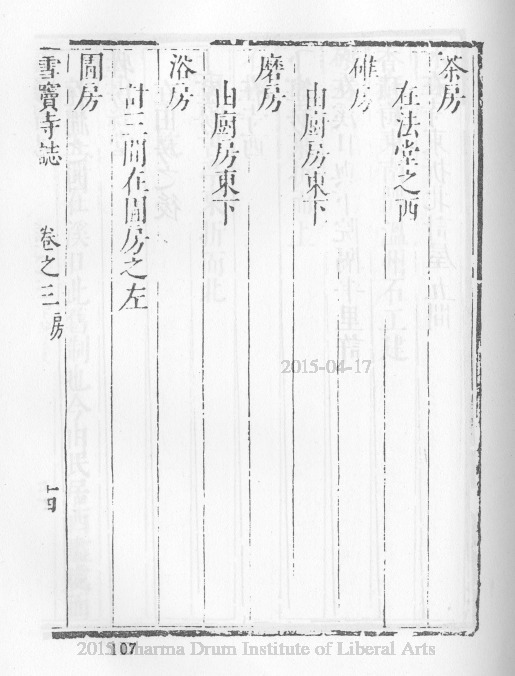 茶房
在法堂之西
碓房
由廚房東下
磨房
由廚房東下
浴房
計三間在圊房之左
圊房
雪竇寺誌 卷之三 房 十四
2015-04-17
107
2015 Dharma Drum Institute of Liberal Arts